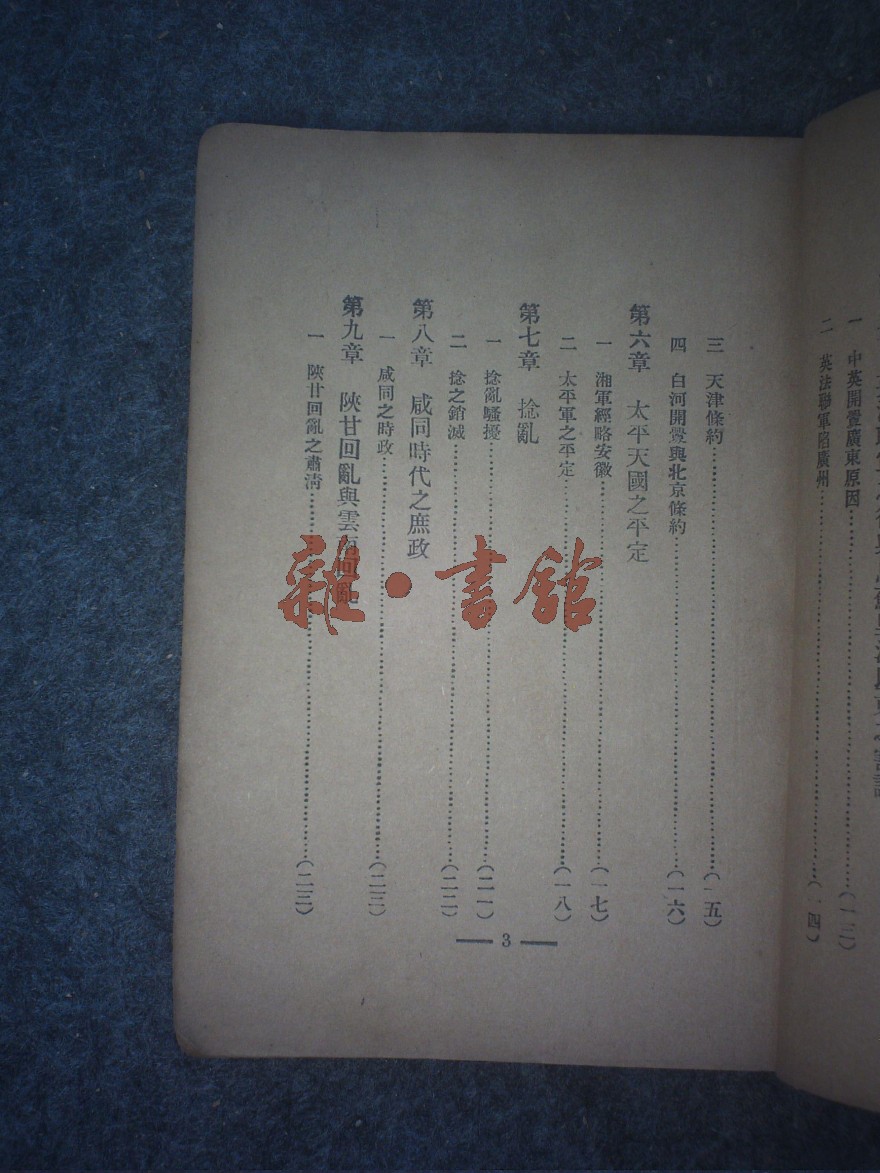 一 中英開釁廣東原因……(一三)
二 英法聯軍陷廣州……(一四)
三 天津條約……(一五)
四 白河開釁與北京條約……(一六)
第六章 太平天國之平定
一 湘軍經略安徽……(一七)
二 太平軍之平定……(一八)
第七章 捻亂
一 捻亂騷擾……(二一)
二 捻之銷滅……(二二)
第八章 咸同時代之庶政
一 咸同之時政……(二三)
第九章 陝甘回亂與雲南回亂
一 陝甘回亂之肅淸……(二三)
— 3 —
雜·書館